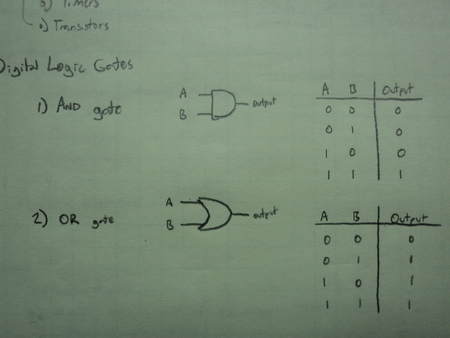 5) Timers
6) Transistors
Digital Logic Gates
1) AND gate
A
B
output
A B Output
0 0 0
0 1 0
1 0 0
1 1 1
2) OR gate
A
B
output
A B Output
0 0 0
0 1 1
1 0 1
1 1 1